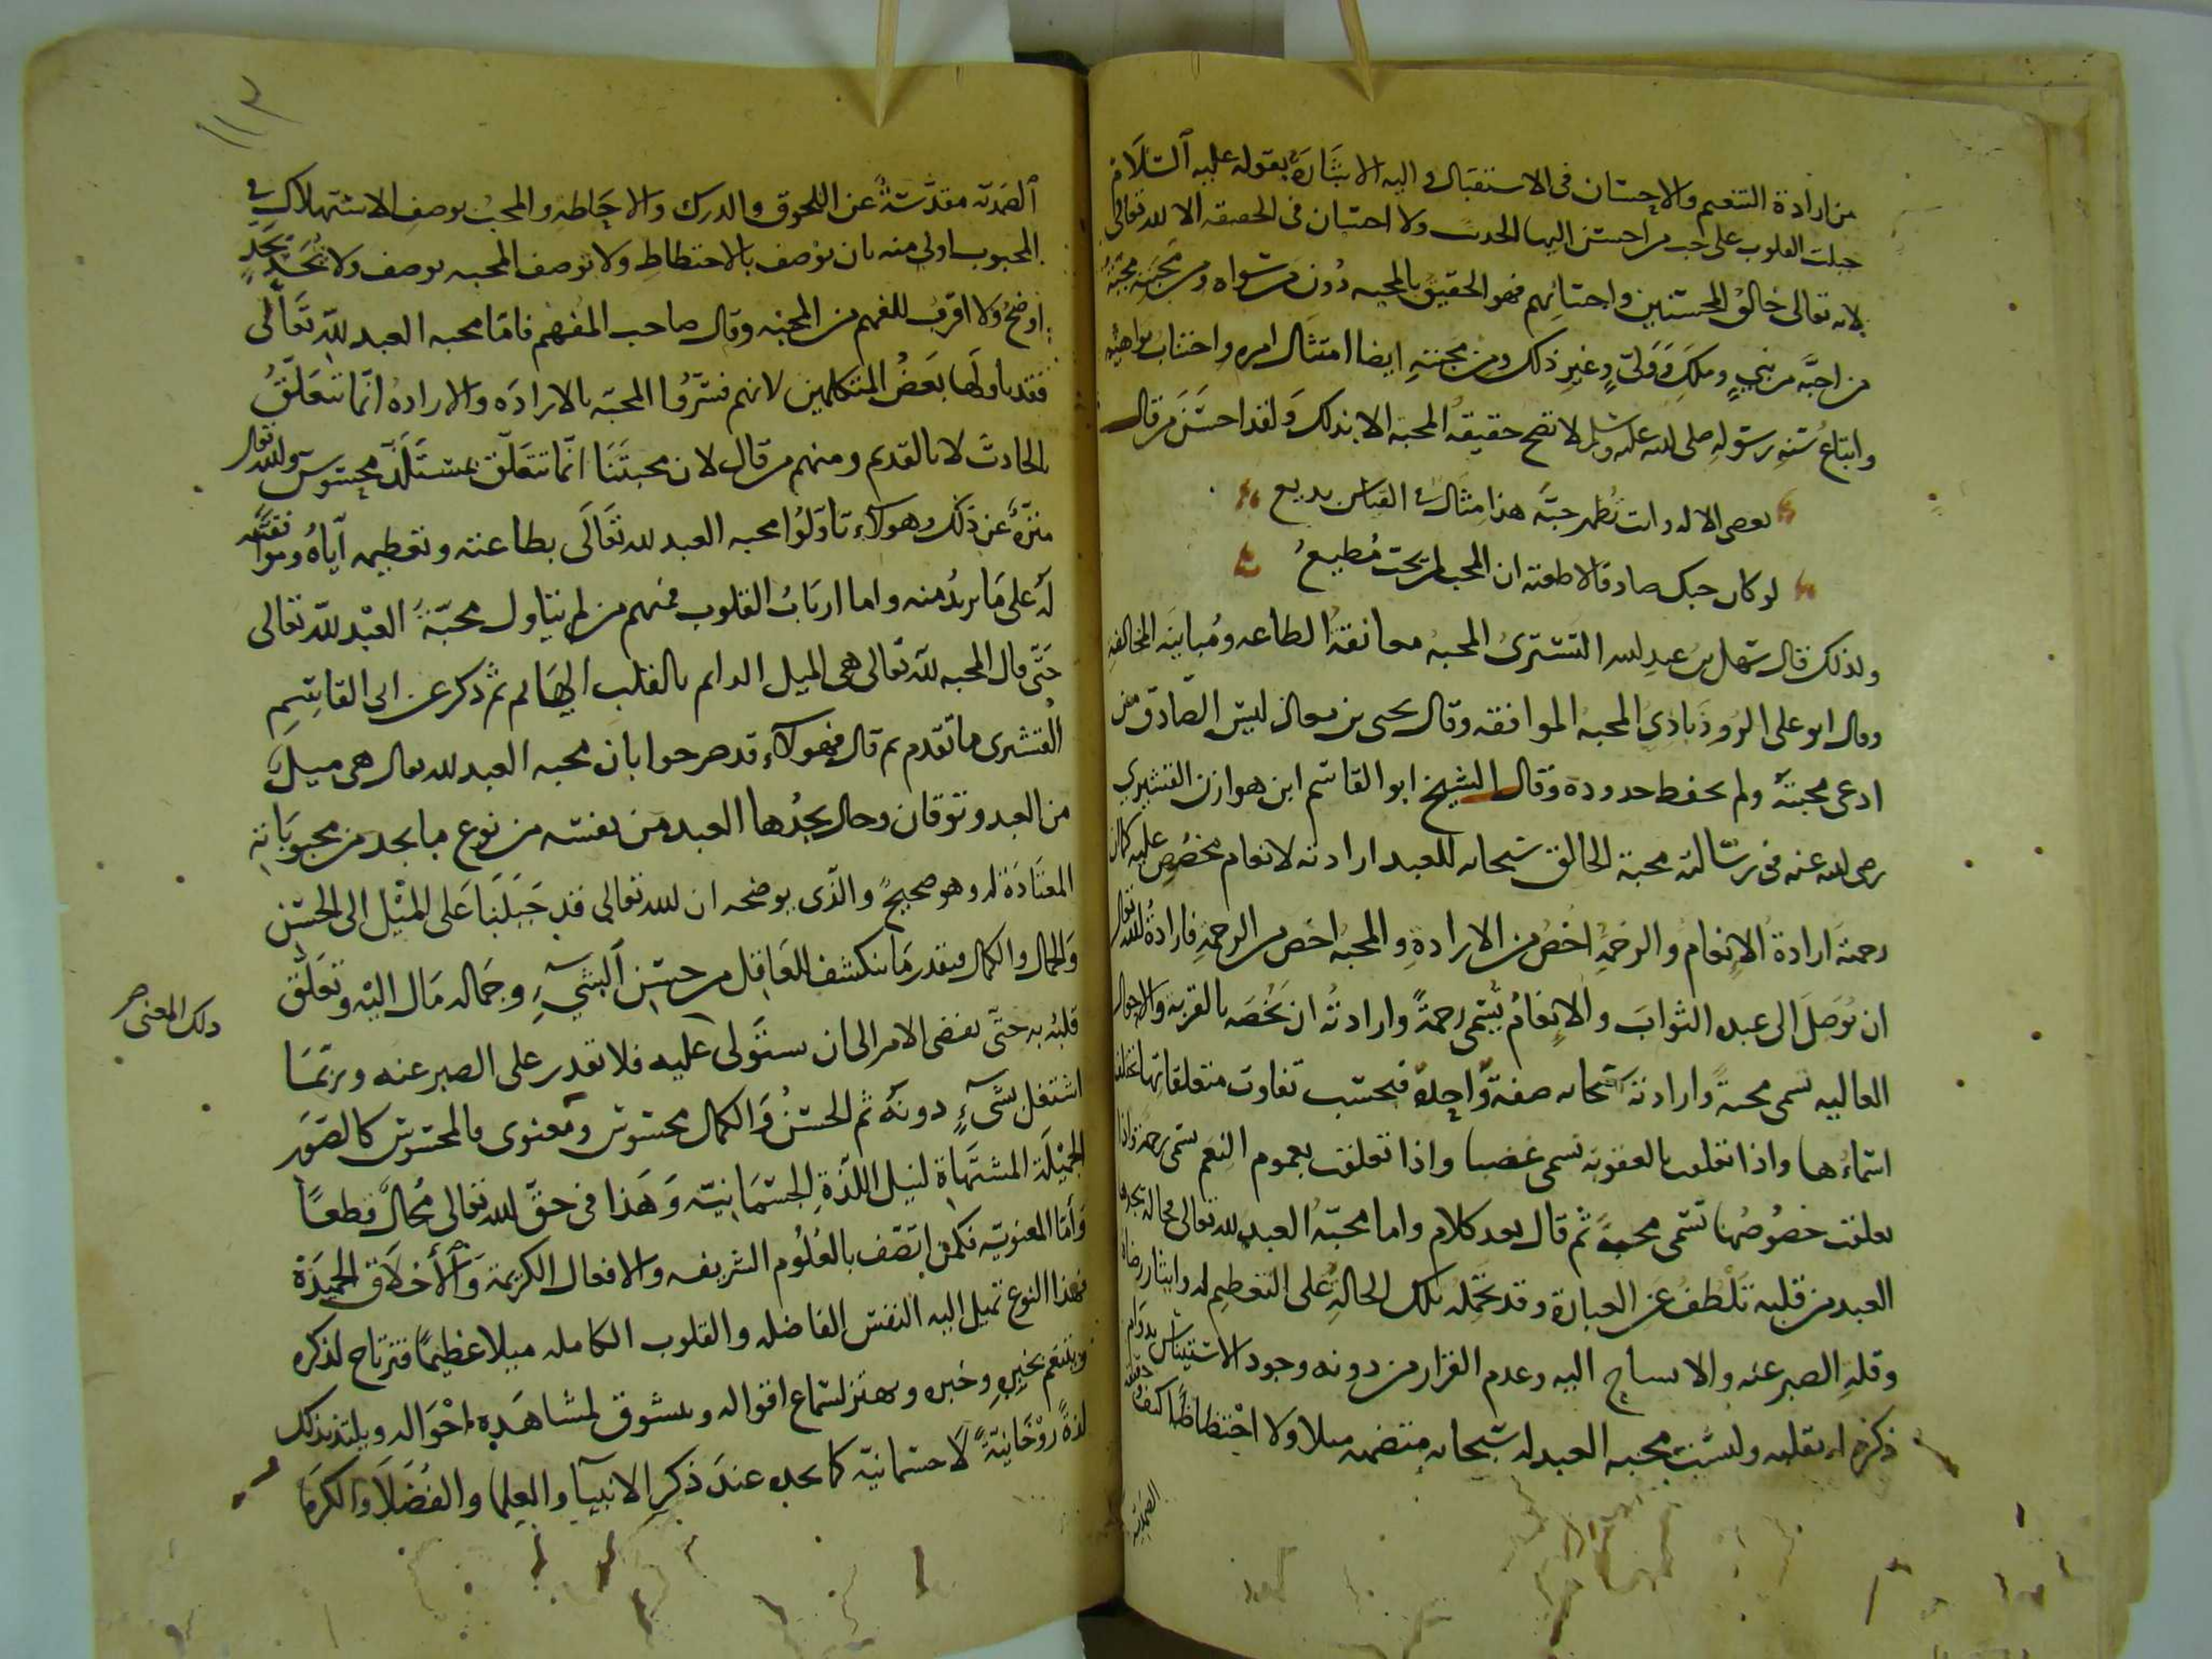 من ارادة التنعيم والاحسان فى الاستقبال واليه الاشارة بقوله عليه السلام
جبلت القلوب على حب من احسن اليها الحديث ولا احسان فى الحقيقه الا لله تعالى
لانه تعالى خالق المحسنين واحسانهم فهو الحقيق بالمحبه دون من سواه ومن محبته محبة
من احبه من نبي وملك وولي وغير ذلك ومن محبته ايضا امتثال امره واجتناب نواهيه
واتباع سنه رسوله صلى الله عليه وسلم لا تصح حقيقة المحبة الا بذلك ولقد احسن من قال
تعصى الاله وانت تظهر حبه هذا مثال فى القياس بديع
لو كان حبك صادقا لاطعته ان المحب لمن يحب مطيع
ولذلك قال سهل بن عبد الله التسترى المحبه معانقة الطاعه ومباينة المخالفه
وقال ابو على الروذبادى المحبه الموافقه وقال يحيى بن معاذ ليس الصادق من
ادعى محبته ولم يحفظ حدوده وقال الشيخ ابو القاسم ابن هوازن القشيري
رضى الله عنه فى رسالته محبة الخالق سبحانه للعبد ارادته لانعام مخصوص عليه كما ان
رحمته ارادة الانعام والرحمة اخص من الارادة والمحبه اخص من الرحمة فارادة الله تعالى
ان يوصل الى عبده الثواب والانعام يسمى رحمة وارادته ان يخصه بالقربة والاحوال
العاليه تسمى محبة وارادته سبحانه صفة واحدة فبحسب تفاوت متعلقاتها تختلف
اسماءها واذا تعلقت بالعقوبة تسمى غضبا واذا تعلقت بعموم النعم تسمى رحمة واذا
تعلقت خصوصها تسمى محبة ثم قال بعد كلام واما محبة العبد لله تعالى فحالة يجدها
العبد من قلبه تلطف عن العبارة وقد تحمله تلك الحالة على التعظيم له وايثار رضاه
وقلة الصبر عنه والاهتياج اليه وعدم القرار من دونه وجود الاستيناس بدوام
ذكره له بقلبه وليست محبه العبد له سبحانه متضمنه ميلا ولا احتظاظا كيف وحقيقة
الصمدية
١١٣
الصمدية مقدسة عن اللحوق والدرك والاحاطة والمحب بوصف الاستهلاك فى
المحبوب اولى منه بان يوصف بالاحتظاظ ولا توصف المحبه بوصف ولا تحد بحد
اوضح ولا اقرب للفهم من المحبه وقال صاحب المفهم فاما محبه العبد لله تعالى
فقد تاولها بعض المتكلمين لانهم فسروا المحبة بالارادة والارادة انما تتعلق
بالحادث لا بالقديم ومنهم من قال لان محبتنا انما تتعلق بمستلذ محسوس والله تعالى
منزه عن ذلك وهولاء تاولوا محبه العبد لله تعالى بطاعته وتعظيمه اياه وموافقته
له على ما يريد منه واما ارباب القلوب فمنهم من لم يتاول محبة العبد لله تعالى
حتى قال المحبه لله تعالى هى الميل الدايم بالقلب الهايم ثم ذكر عن ابى القاسم
القشيرى ما تقدم ثم قال فهولاء قد صرحوا بان محبه العبد لله تعالى هى ميل
من العبد وتوقان وحال يجدها العبد من نفسه من نوع ما يجد من محبوباته
المعتادة له وهو صحيح والذى يوضحه ان الله تعالى قد جبلنا على الميل الى الحسن
والجمال والكمال فبقدر ما ينكشف للعاقل من حسن الشيء وجماله مال اليه وتعلق
قلبه به حتى يفضى الامر الى ان يستولى عليه فلا يقدر على الصبر عنه وربما
ذلك المعنى صح
اشتغل بشيء دونه ثم الحسن والكمال محسوس ومعنوى فالمحسوس كالصور
الجميلة المشتهاة لنيل اللذة الجسمانية وهذا فى حق الله تعالى محال قطعا
واما المعنوية فكمن اتصف بالعلوم الشريفه والافعال الكريمة والاخلاق الحميدة
فهذا النوع تميل اليه النفس الفاضله والقلوب الكامله ميلا عظيما فترتاح لذكره
ويتنعم بخيره وخبره ويهتز لسماع اقواله ويتشوق لمشاهدة احواله ويلتذ بذلك
لذة روحانية لا جسمانية كما يجده عند ذكر الانبيآ والعلما والفضلا والكرما